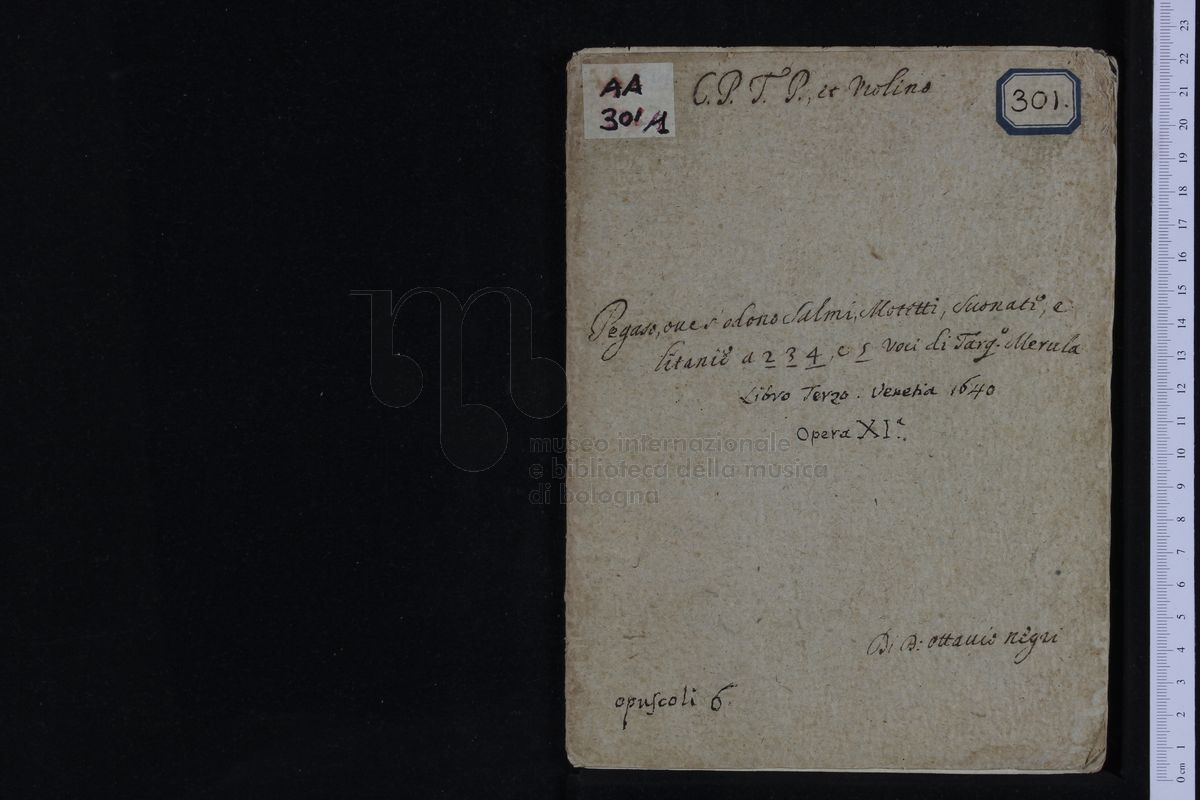 AA
301/1
C. P. T. P., et Violino
301.
Pegaso, oue s'odono Salmi, Motetti, Suonate, e
litanie a 2 3 4, e 5 voci di Tarq.º Merula
Libro Terzo. Venetia 1640
Opera XIª.
museo internazionale
e biblioteca della musica
di bologna
Di D: Ottauio negri
opuscoli 6.
0 cm 1 2 3 4 5 6 7 8 9 10 11 12 13 14 15 16 17 18 19 20 21 22 23